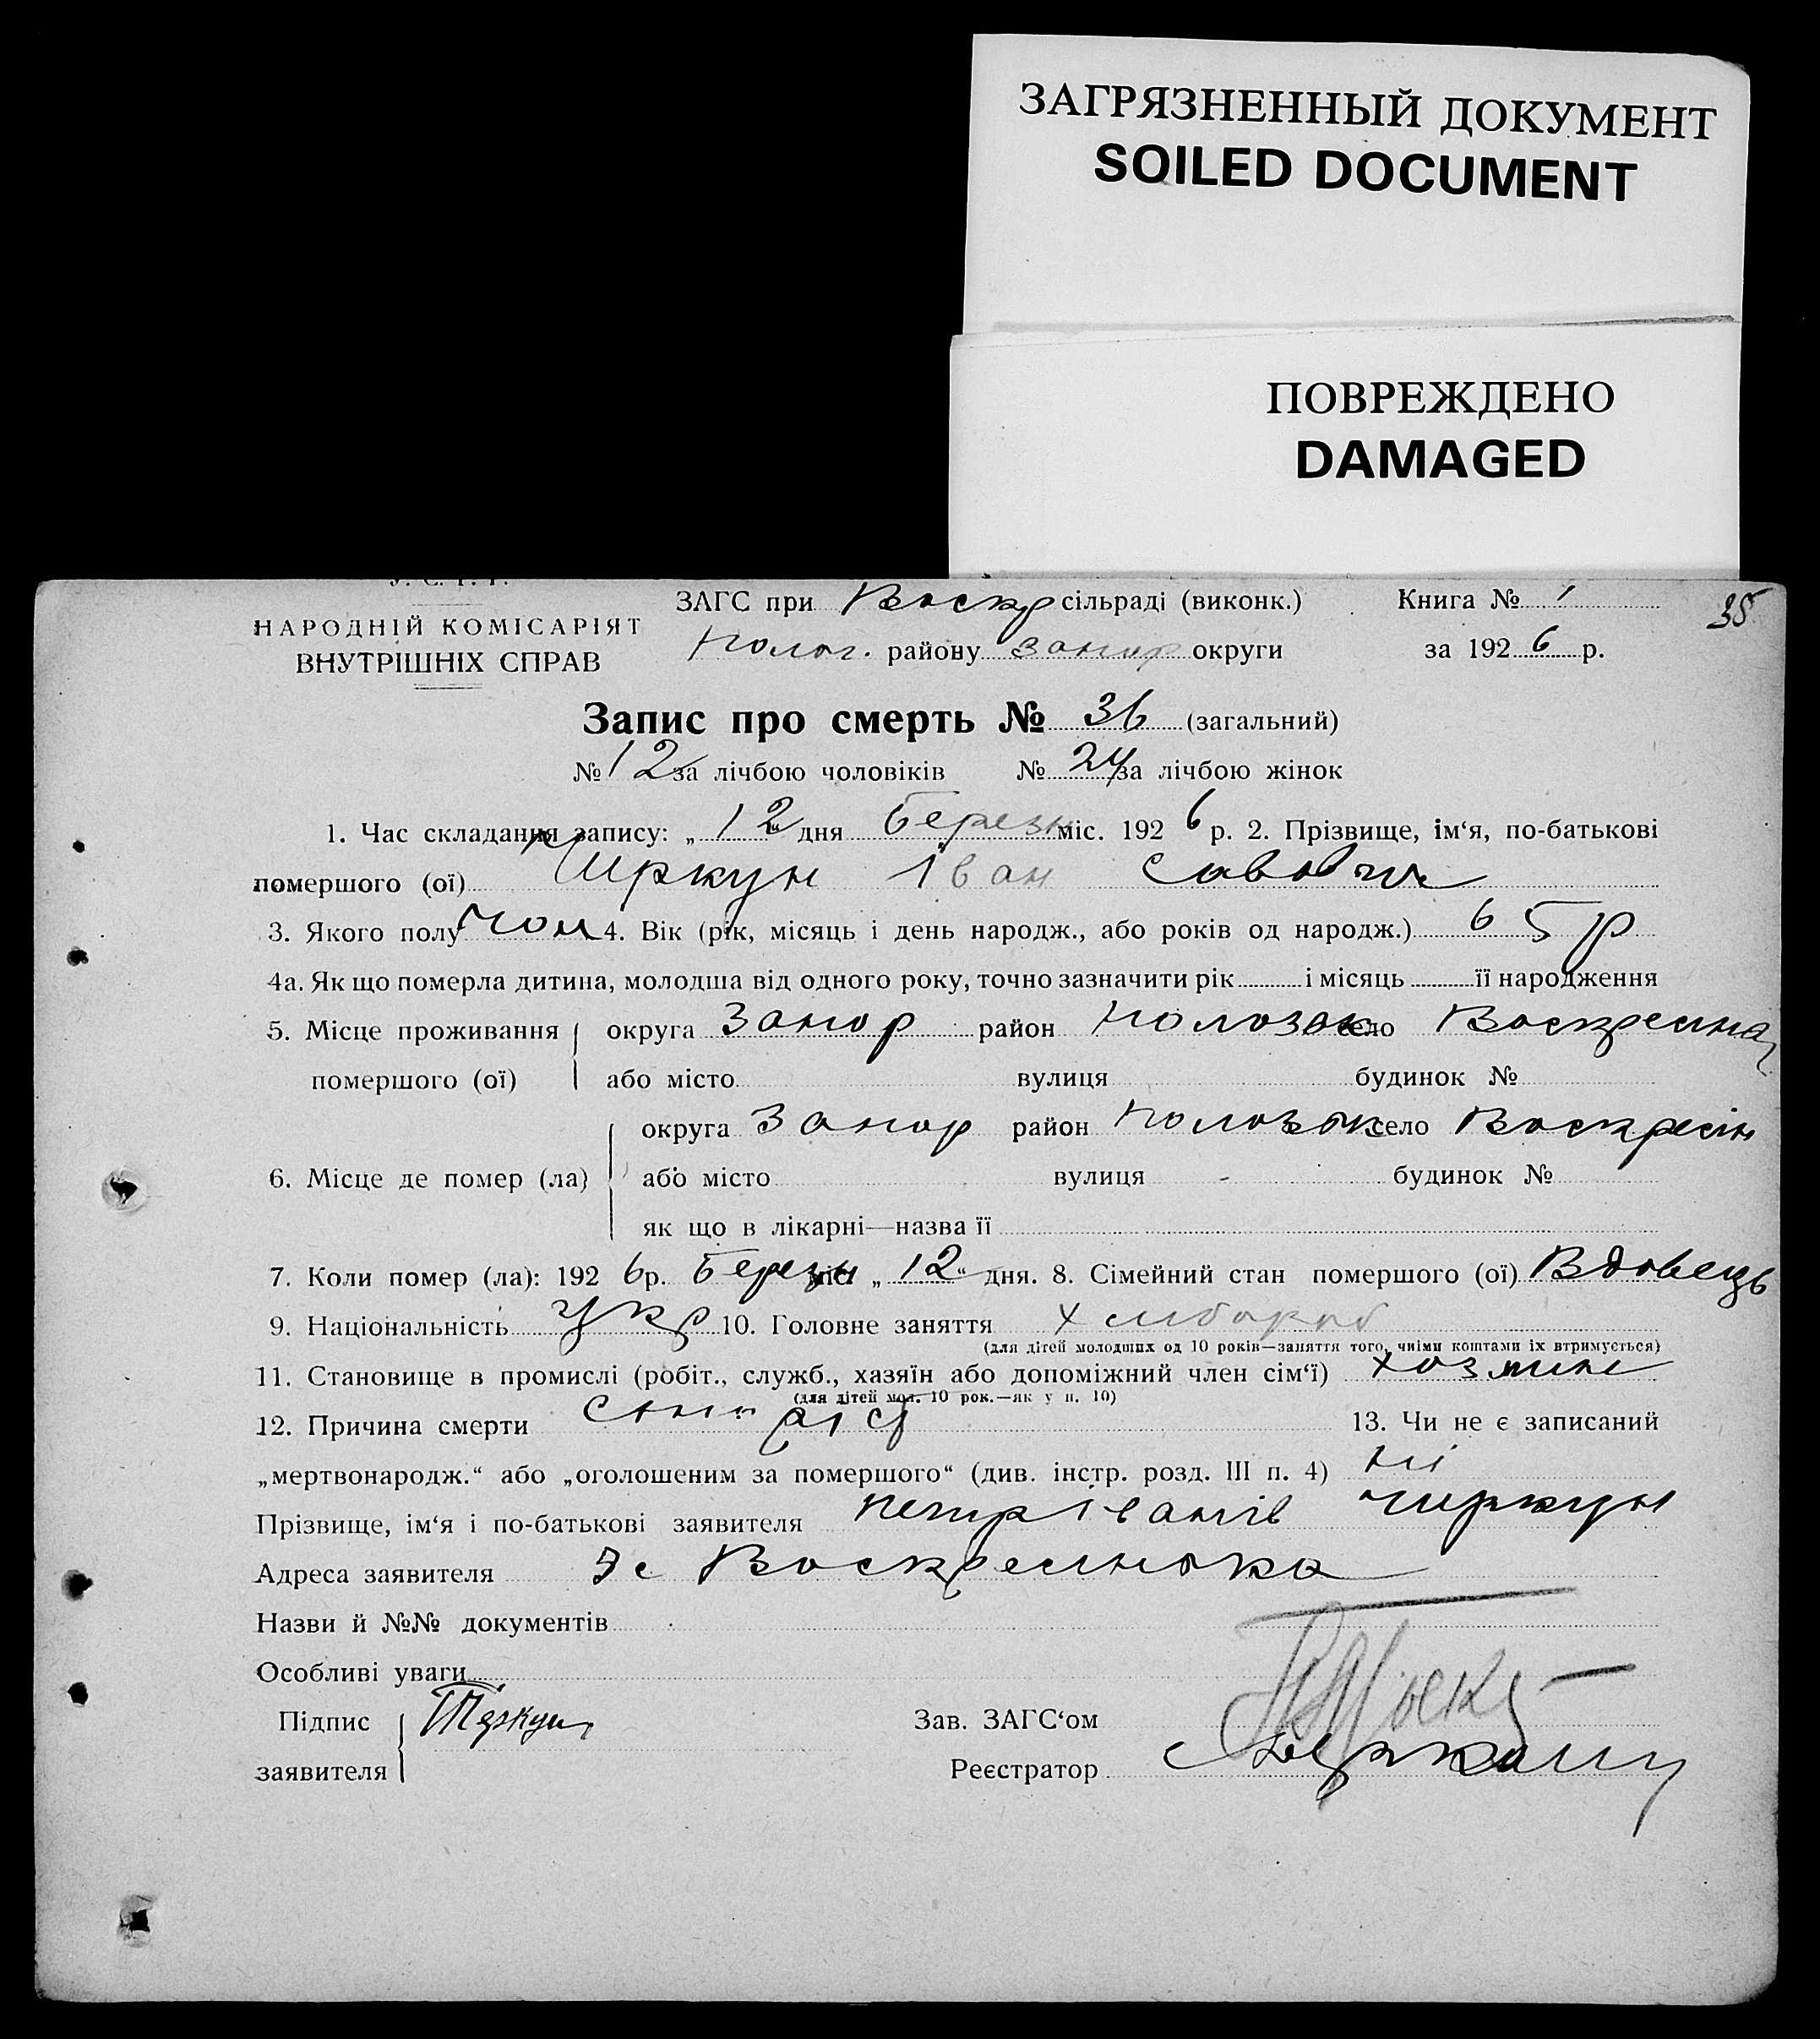 ЗАГРЯЗНЕННЫЙ ДОКУМЕНТ
SOILED DOCUMENT
ПОВРЕЖДЕНО
DAMAGED
У. С. Р. Р.
НАРОДНІЙ КОМІСАРІЯТ
ВНУТРІШНІХ СПРАВ
ЗАГС при Воскр сільраді (виконк.) Книга № 1
35
Полог. району Запор округи за 192 6 р.
Запис про смерть № 36 (загальний)
№ 12 за лічбою чоловіків № 24 за лічбою жінок
1. Час складання запису: „ 12 “ дня Березн міс. 192 6 р. 2. Прізвище, ім‘я, по-батькові
помершого (ої) Чиркун Іван Савович
3. Якого полу Чол 4. Вік (рік, місяць і день народж., або років од народж.) 65 р
4а. Як що померла дитина, молодша від одного року, точно зазначити рік і місяць її народження
5. Місце проживання округа Запор район Пологок село Воскресенка
помершого (ої) або місто вулиця будинок №
округа Запор район Пологок село Воскресін
6. Місце де помер (ла) або місто вулиця будинок №
як що в лікарні—назва її
7. Коли помер (ла): 192 6 р. Березн міс. „ 12 “ дня. 8. Сімейний стан помершого (ої) Вдовець
9. Національність укр 10. Головне заняття Хлібороб
(для дітей молодших од 10 років—заняття того, чиїми коштами їх втримується)
11. Становище в промислі (робіт., служб., хазяїн або допоміжний член сім‘ї)
(для дітей мол. 10 рок.—як у п. 10)
12. Причина смерти 13. Чи не є записаний
„мертвонародж.“ або „оголошеним за помершого“ (див. інстр. розд. III п. 4) Ні
Прізвище, ім‘я і по-батькові заявителя Петр Іванів Чиркун
Адреса заявителя с Воскресенька
Назви й №№ документів
Особливі уваги
Підпис
заявителя
Зав. ЗАГС‘ом
Реєстратор